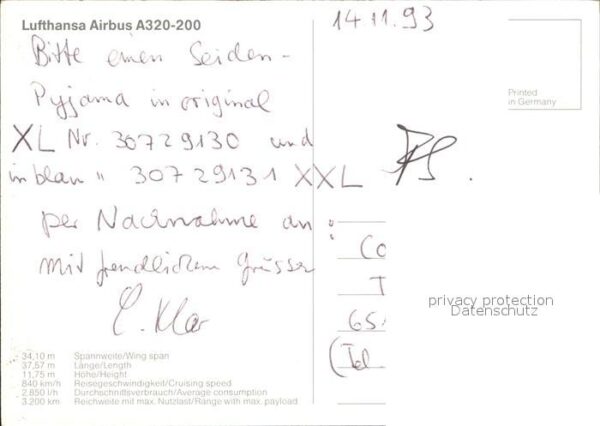 Lufthansa Airbus A320-200
14 11.93
Bitte einen Seiden-
Pyjama in original
XL Nr. 30729130 und
in blau " 30729131 XXL
per Nachnahme an:
mit freundlichem Grüssen
C. Klar
Printed
in Germany
Co
T
65
(Tel
privacy protection
Datenschutz
34,10 m Spannweite/Wing span
37,57 m Länge/Length
11,75 m Höhe/Height
840 km/h Reisegeschwindigkeit/Cruising speed
2.850 l/h Durchschnittsverbrauch/Average consumption
3.200 km Reichweite mit max. Nutzlast/Range with max. payload